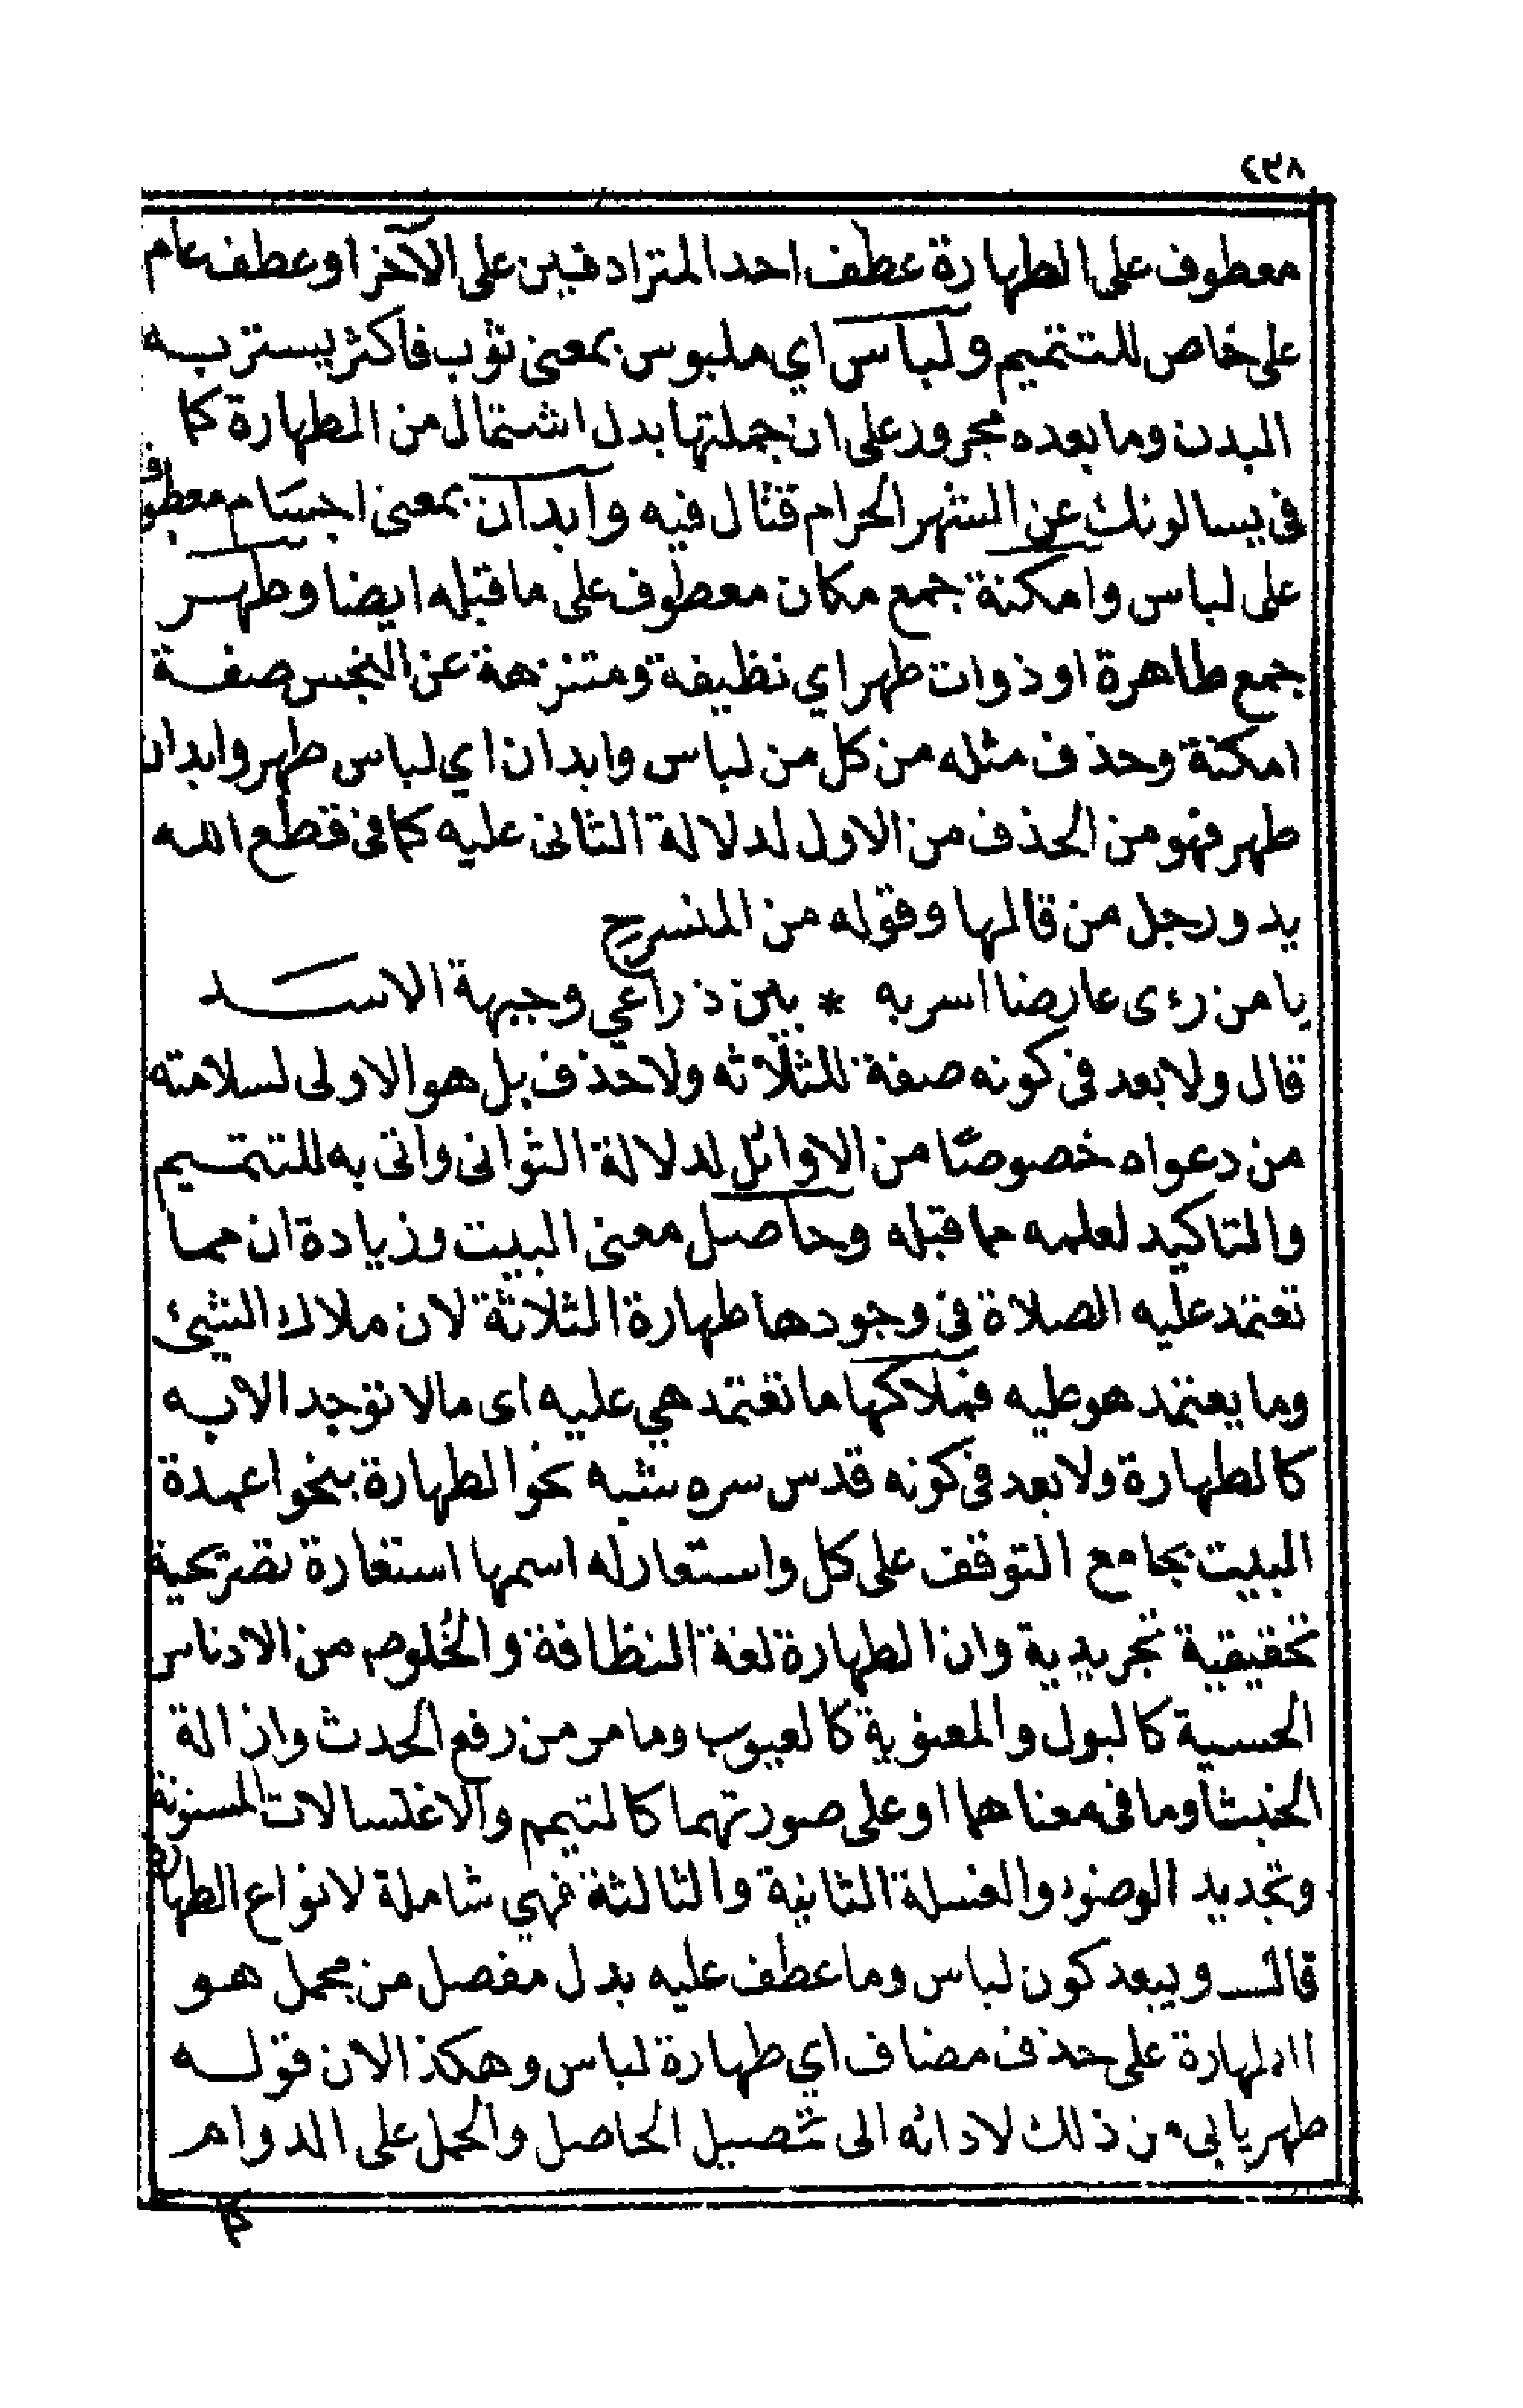 ٤٣٨
معطوف على الطهارة عطف احد المترادفين على الآخر او عطف عام
على خاص للتتميم ولباس اي ملبوس بمعنى ثوب فاكثر يستر به
البدن وما بعده مجرور على ان جملتها بدل اشتمال من الطهارة كما
في يسالونك عن الشهر الحرام قتال فيه وابدان بمعنى اجسام معطوف
على لباس وامكنة جمع مكان معطوف على ما قبله ايضا وطهر
جمع طاهرة او ذوات طهر اي نظيفة ومتنزهة عن النجس صفة
امكنة وحذف مثله من كل من لباس وابدان اي لباس طهر وابدان
طهر فهو من الحذف من الاول لدلالة الثانى عليه كما في قطع الله
يد ورجل من قالها وقوله من المنسرح
يا من رءى عارضا اسر به * بين ذراعي وجبهة الاسد
قال ولا بعد في كونه صفة للثلاثه ولا حذف بل هو الاولى لسلامته
من دعواه خصوصًا من الاوائل لدلالة الثوانى واتى به للتتميم
والتاكيد لعلمه مما قبله وحاصل معنى البيت وزيادة ان مما
تعتمد عليه الصلاة في وجودها طهارة الثلاثة لان ملاك الشيئ
وما يعتمد هو عليه فملاكها ما تعتمد هي عليه اى مالا توجد الا به
كالطهارة ولا بعد في كونه قدس سره شبه نحو الطهارة بنحو اعمدة
البيت بجامع التوقف على كل واستعار له اسمها استعارة تصريحية
تحقيقية تجريدية وان الطهارة لغة النظافة والخُلوص من الادناس
الحسية كالبول والمعنوية كالعيوب وما مر من رفع الحدث وازالة
الخبث او ما في معناهما او على صورتهما كالتيمم والاغتسالات المسنونة
وتجديد الوضوء والغسلة الثانية والثالثة فهي شاملة لانواع الطهارة
قال ويبعد كون لباس وما عطف عليه بدل مفصل من مجمل هو
الطهارة على حذف مضاف اي طهارة لباس وهكذا لان قوله
طهر يابى من ذلك لادائه الى تحصيل الحاصل والحمل على الدوام
كما